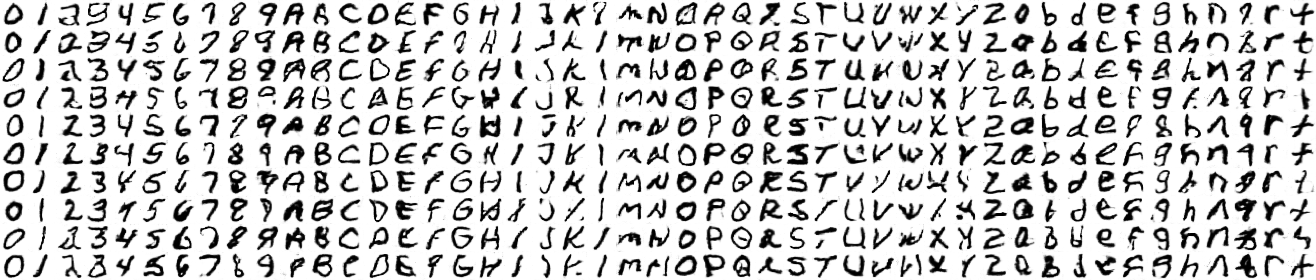 0 1 2 3 4 5 6 7 8 9 A B C D E F G H I J K l m N O P Q R S T U V W X Y Z a b d e f g h n q r t
0 1 2 3 4 5 6 7 8 9 A B C D E F G H I J K l m N O P Q R S T U V W X Y Z a b d e f g h n q r t
0 1 2 3 4 5 6 7 8 9 A B C D E F G H I J K l m N O P Q R S T U V W X Y Z a b d e f g h n q r t
0 1 2 3 4 5 6 7 8 9 A B C D E F G H I J K l m N O P Q R S T U V W X Y Z a b d e f g h n q r t
0 1 2 3 4 5 6 7 8 9 A B C D E F G H I J K l m N O P Q R S T U V W X Y Z a b d e f g h n q r t
0 1 2 3 4 5 6 7 8 9 A B C D E F G H I J K l m N O P Q R S T U V W X Y Z a b d e f g h n q r t
0 1 2 3 4 5 6 7 8 9 A B C D E F G H I J K l M N O P Q R S T U V W X Y Z a b d e f g h n q r t
0 1 2 3 4 5 6 7 8 9 A B C D E F G H I J K l M N O P Q R S T U V W X Y Z a b d e f g h n q r t
0 1 2 3 4 5 6 7 8 9 A B C D E F G H I J K l m N O P Q R S T U V W X Y Z a b d e f g h n q r t
0 1 2 3 4 5 6 7 8 9 A B C D E F G H I J K l m N O P Q R S T U V W X Y Z a b d e f g h n q r t